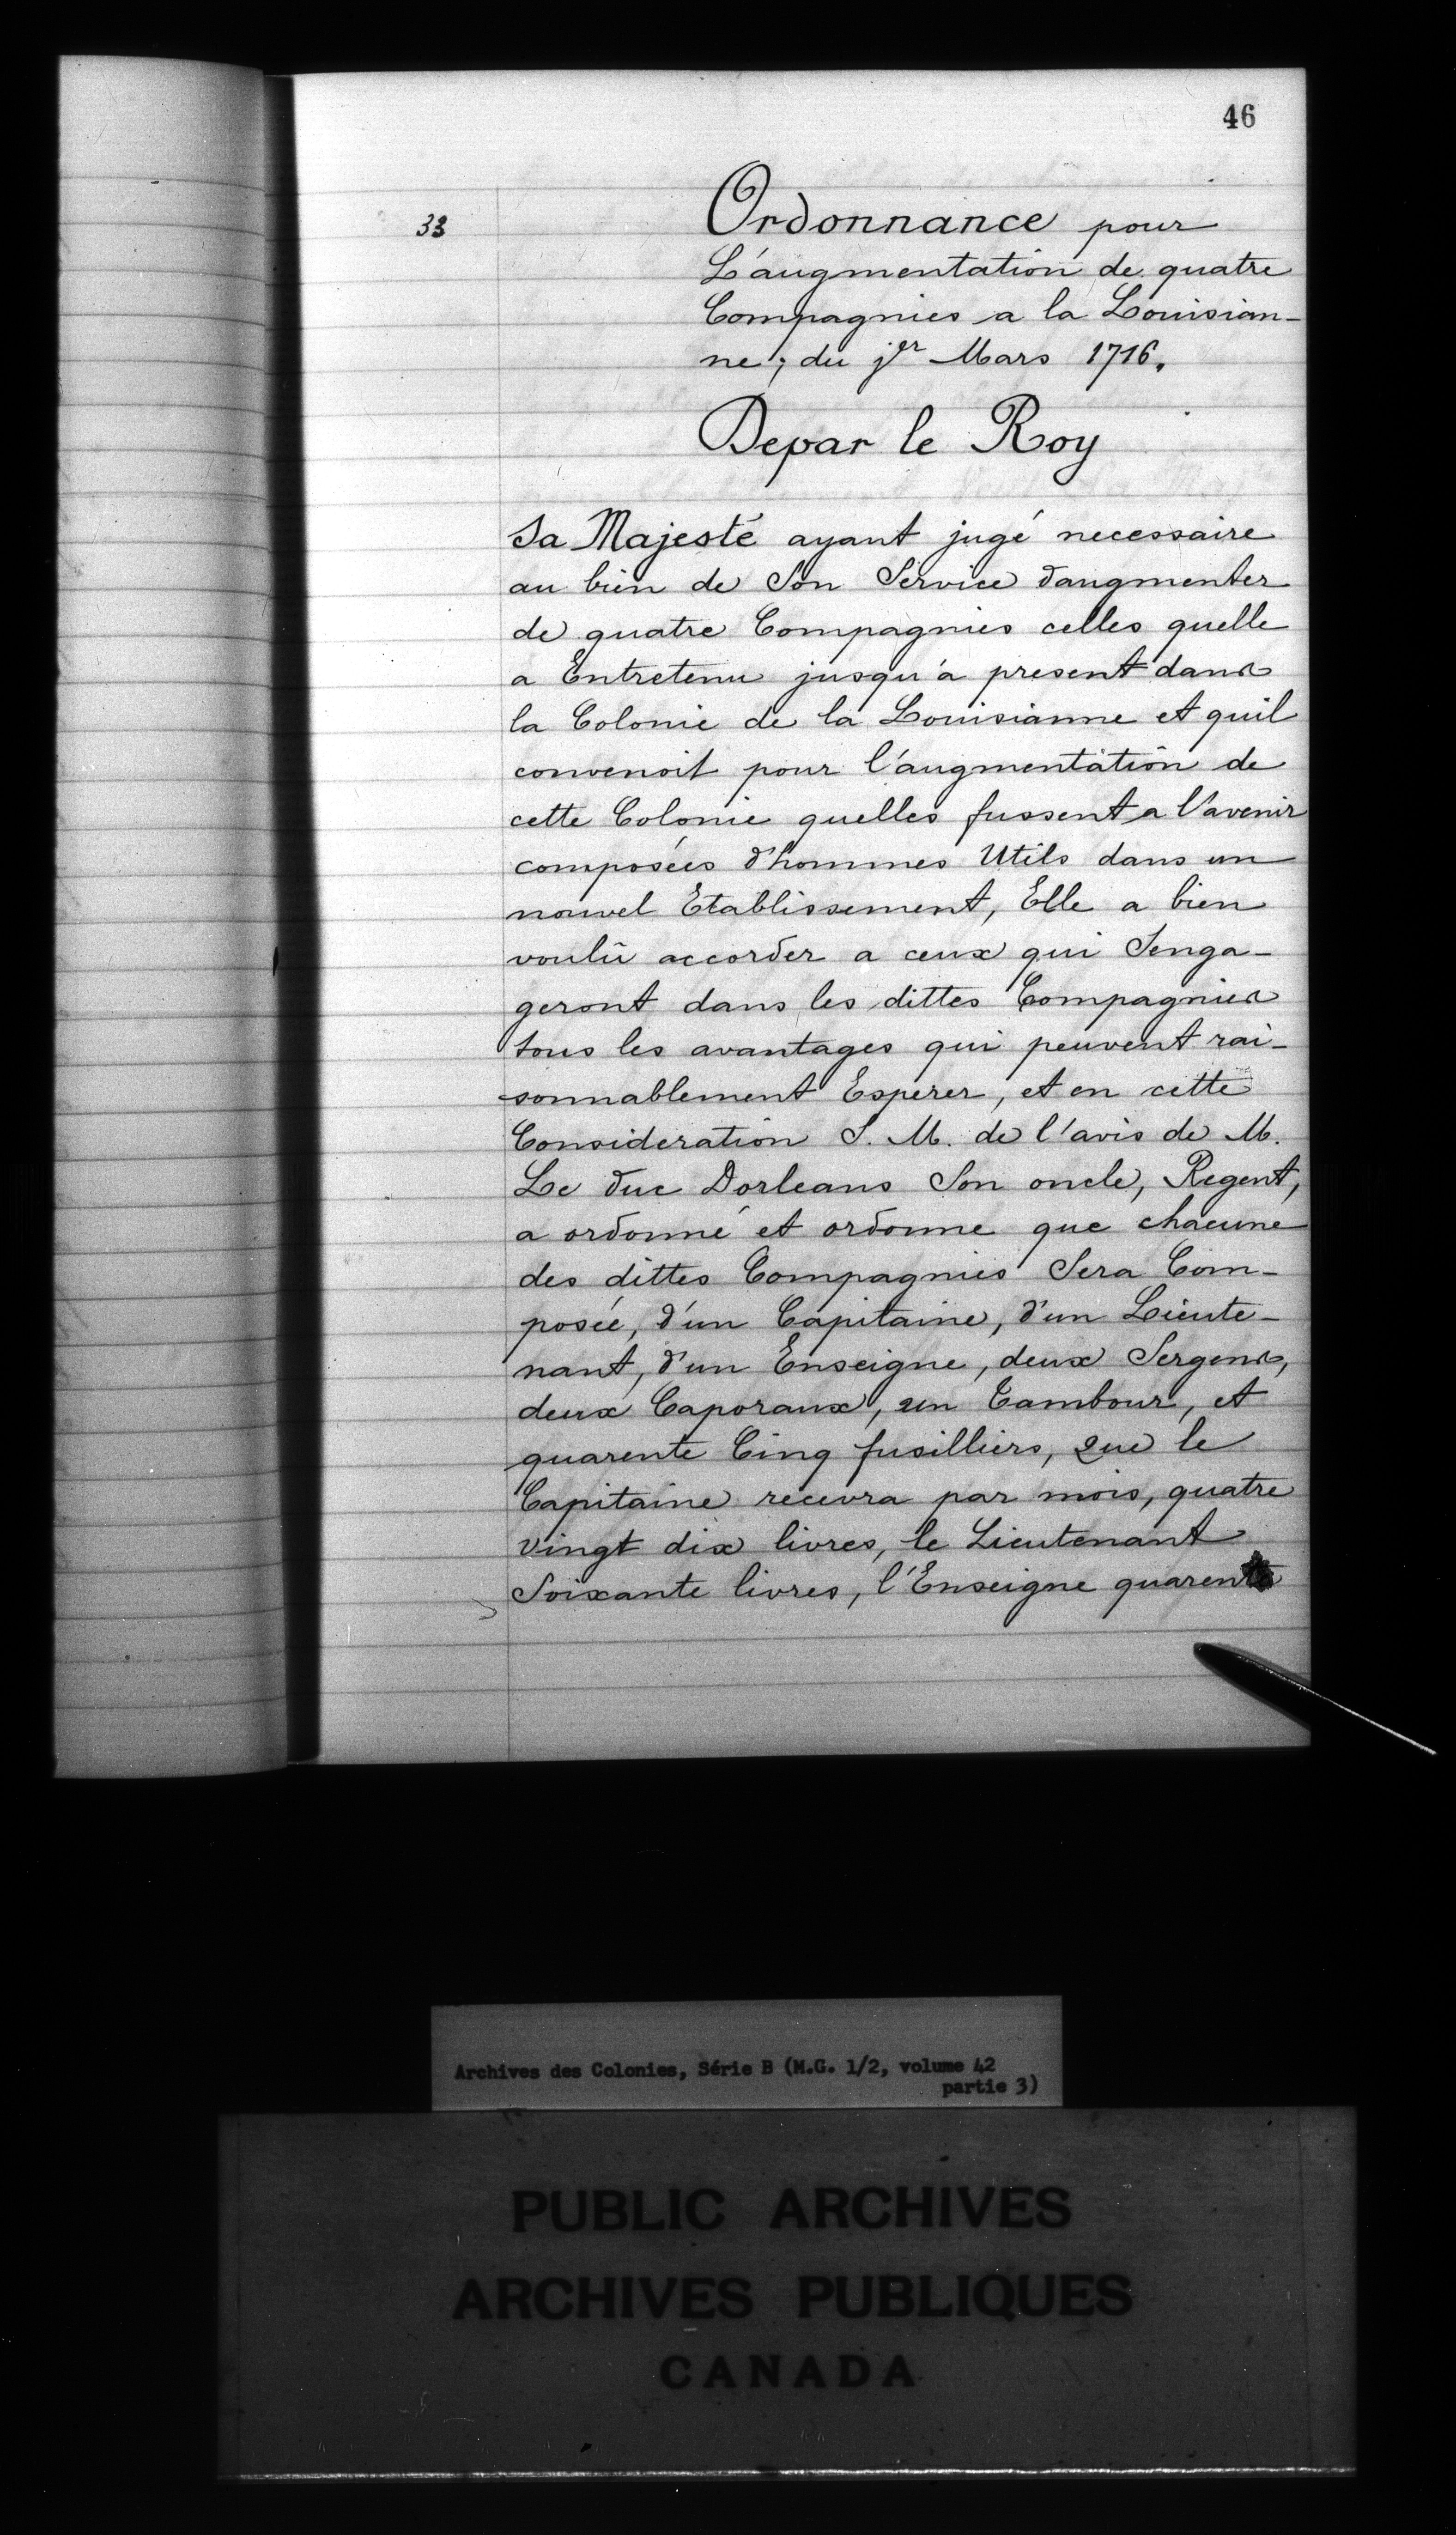 46
33
Ordonnance pour
L'augmentation de quatre
Compagnies a la Louisian-
ne; du jer Mars 1716.
Depar le Roy
Sa Majesté ayant jugé necessaire
au bien de Son Service daugmenter
de quatre Compagnies celles quelle
a Entretenu jusqu'a present dans
la Colonie de la Louisianne et quil
convenoit pour l'augmentation de
cette Colonie quelles fussent a l'avenir
composées d'hommes Utils dans un
nouvel Etablissement, Elle a bien
voulû accorder a ceux qui Senga-
geront dans les dittes Compagnies
tous les avantages qui peuvent rai-
sonnablement Esperer, et en cette
Consideration S. M. de l'avis de M.
Le duc Dorleans Son oncle, Regent,
a ordonné et ordonne que chacune
des dittes Compagnies Sera Com-
posée, d'un Capitaine, d'un Lieute-
nant, d'un Enseigne, deux Sergens,
deux Caporaux, un Tambour, et
quarente Cinq fusilliers, que le
Capitaine recevra par mois, quatre
vingt dix livres, le Lieutenant
Soixante livres, l'Enseigne quarente
Archives des Colonies, Série B (M.G. 1/2, volume 42
partie 3)
PUBLIC ARCHIVES
ARCHIVES PUBLIQUES
CANADA